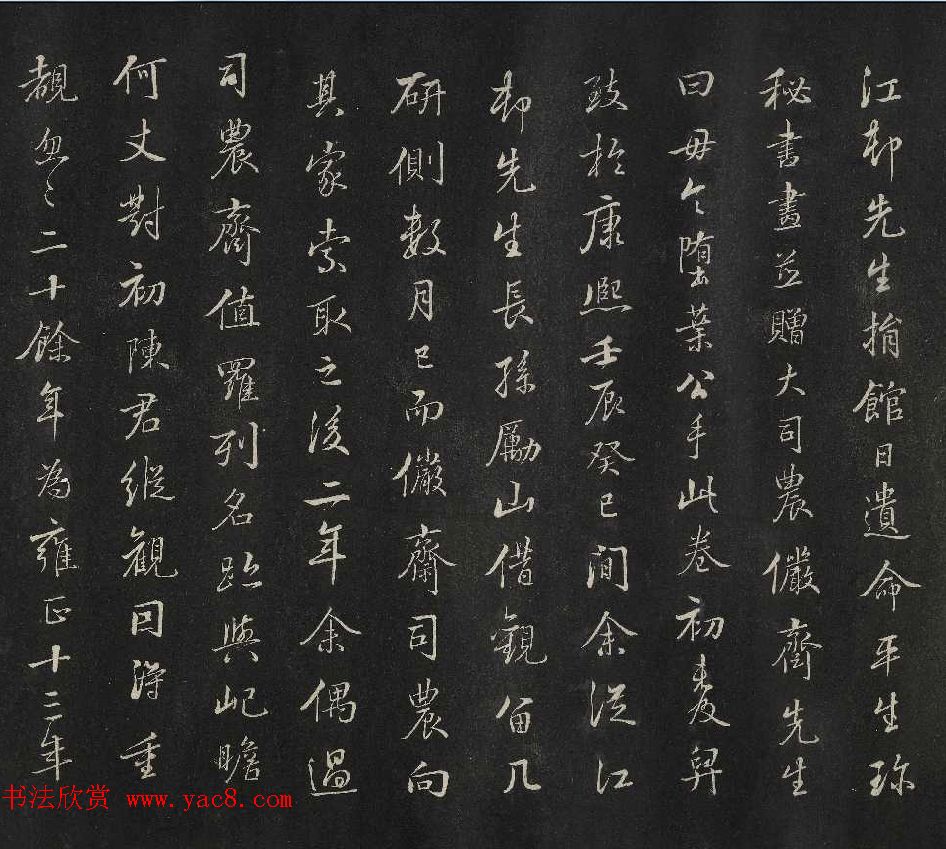 江邨先生捐館日遺命平生珎
秘書畫並贈大司農儼齋先生
曰毋令墮葉公手此卷初
於康熙壬辰癸巳間余從江
邨先生長孫勵山借觀留几
研側數月已而儼齋司農向
其家索取之後二年余偶過
司農齋值羅列名跡與屺瞻
何丈對初陳君縱觀因得重
覩忽〻二十餘年為雍正十三年
书法欣赏 www.yac8.com